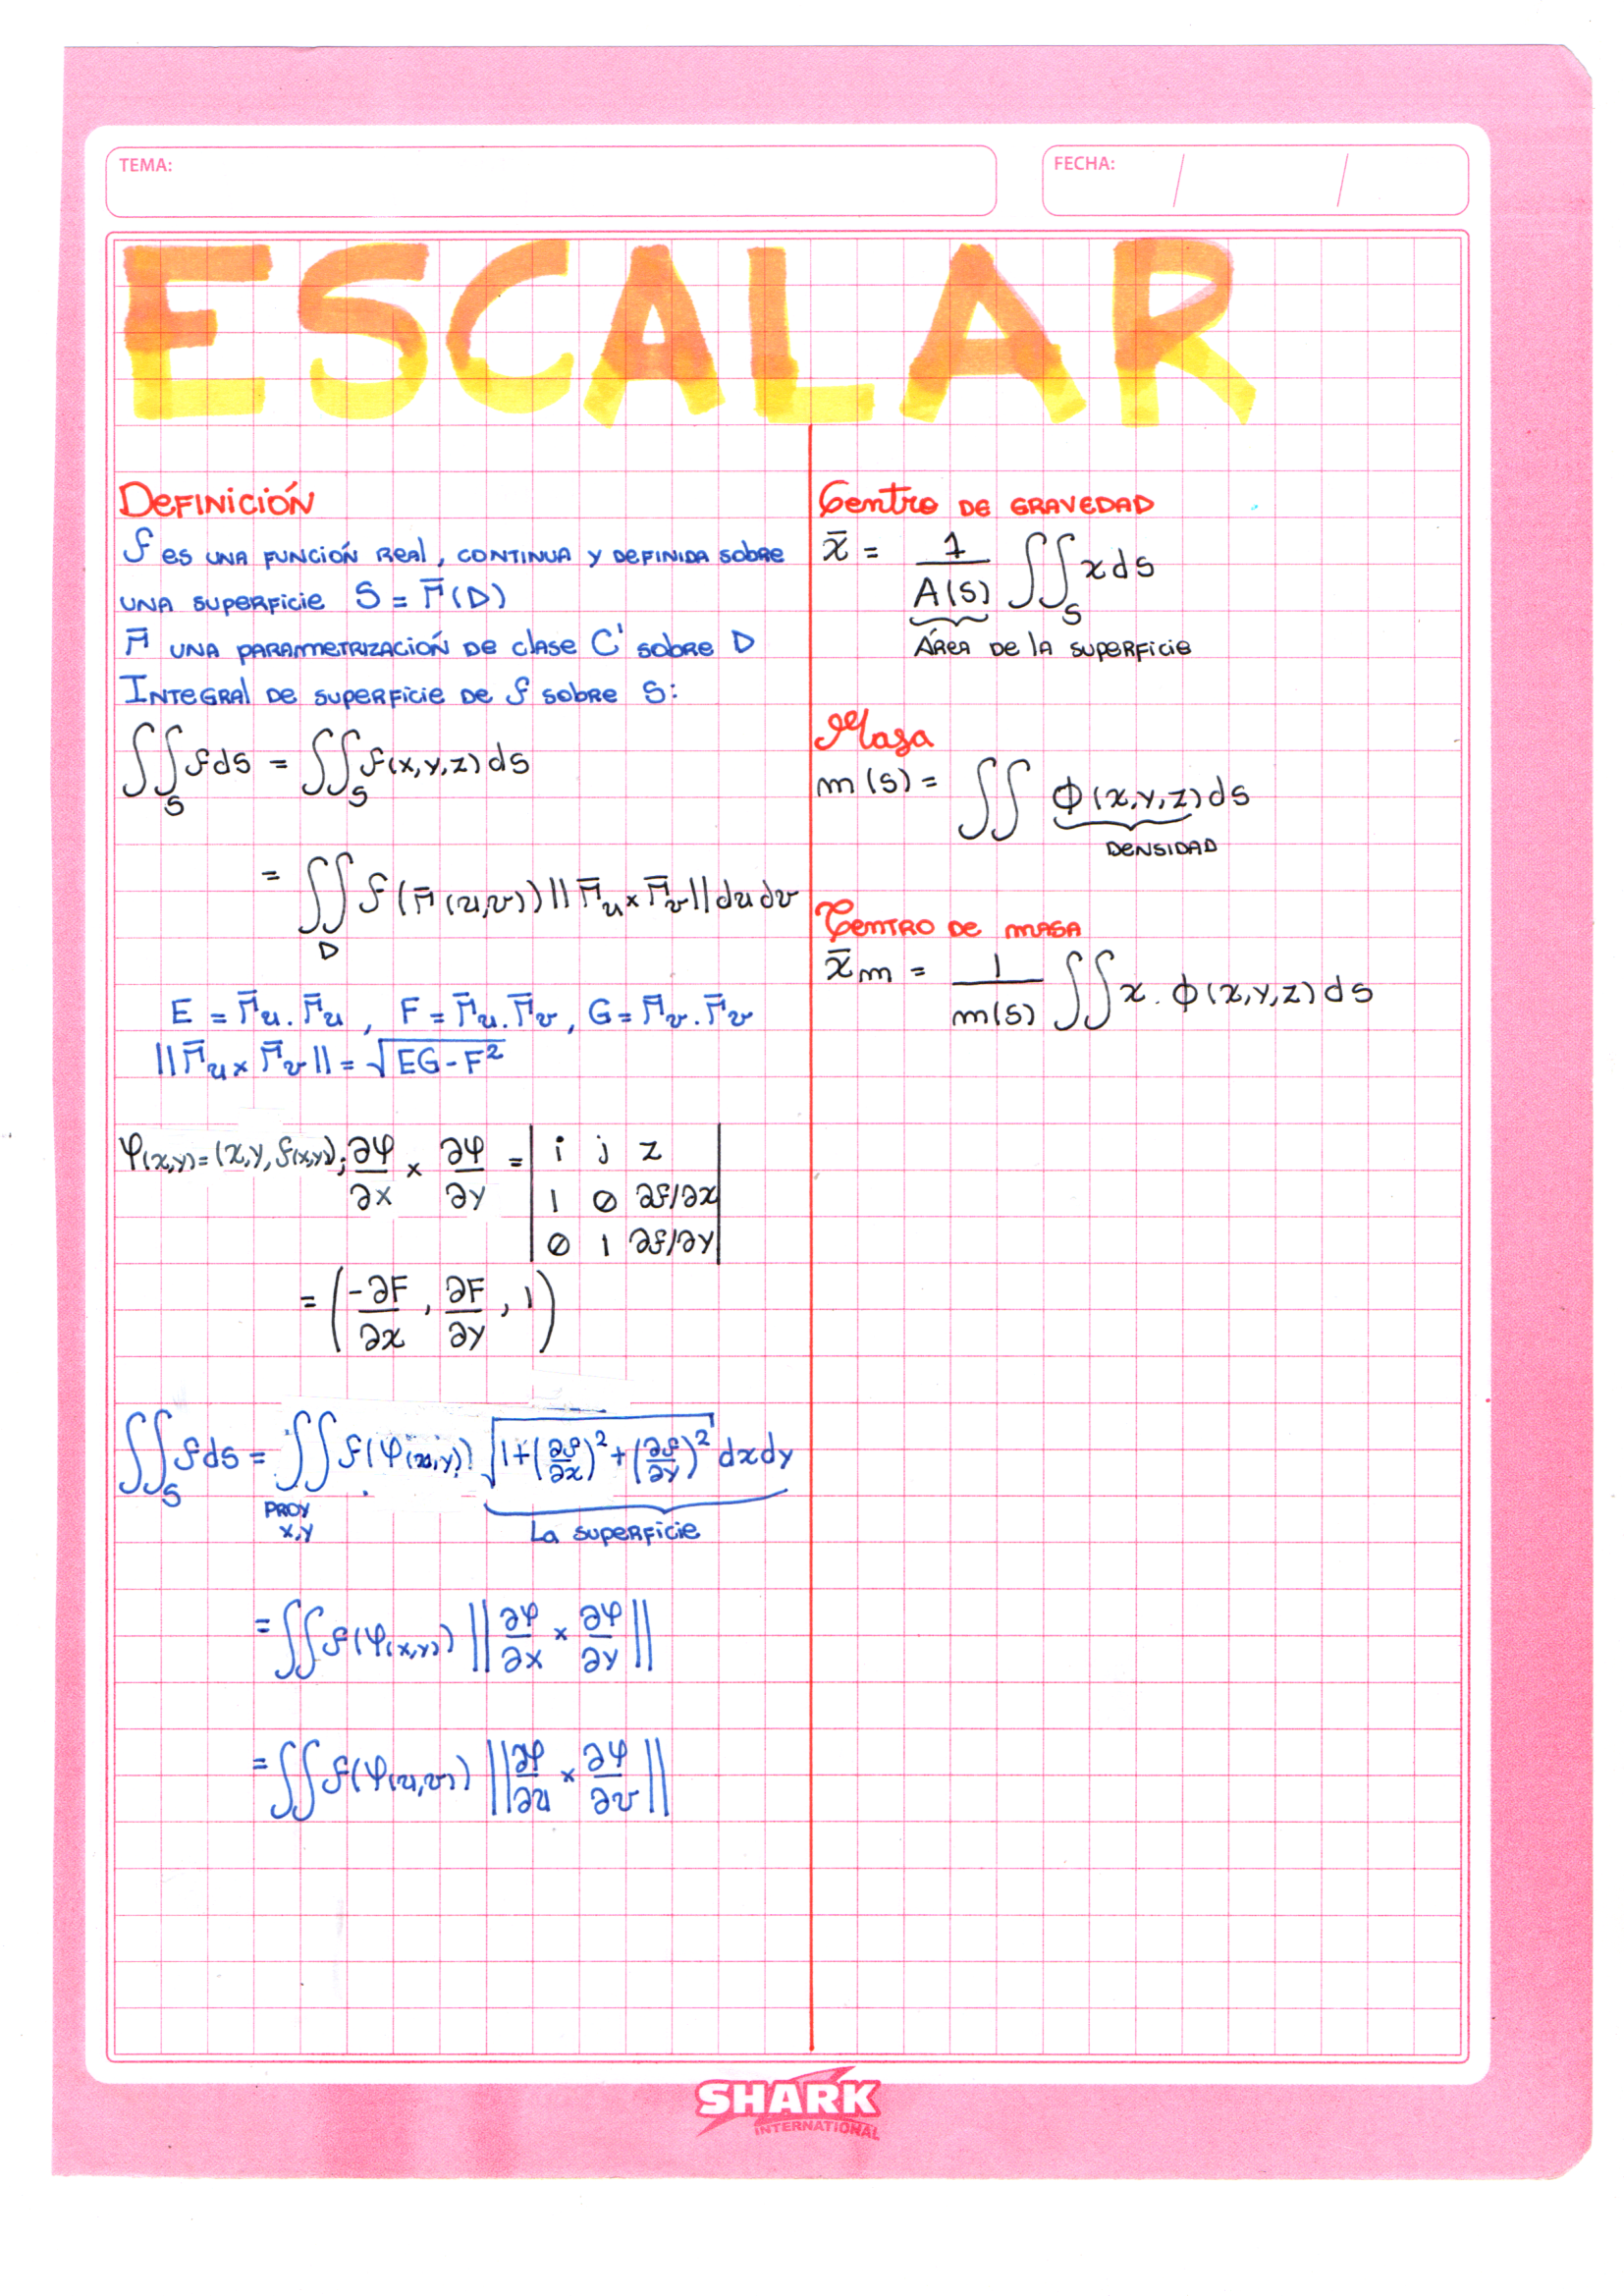 TEMA:
FECHA: / /
ESCALAR
DEFINICIÓN
f es una función real, continua y definida sobre
una superficie S = r̄(D)
r̄ una parametrización de clase C' sobre D
Integral de superficie de f sobre S:
∬_S f ds = ∬_S f(x,y,z) ds
= ∬_D f(r̄(u,v)) ||r̄u × r̄v|| du dv
E = r̄u . r̄u , F = r̄u . r̄v , G = r̄v . r̄v
||r̄u × r̄v|| = √(EG - F²)
φ(x,y) = (x,y,f(x,y)); ∂φ/∂x × ∂φ/∂y = | i j z |
| 1 0 ∂f/∂x |
| 0 1 ∂f/∂y |
= (-∂F/∂x , ∂F/∂y , 1)
∬_S f ds = ∬ f(φ(x,y)) √(1+(∂f/∂x)²+(∂f/∂y)²) dx dy
PROY
x,y
La superficie
= ∬ f(φ(x,y)) ||∂φ/∂x × ∂φ/∂y||
= ∬ f(φ(u,v)) ||∂φ/∂u × ∂φ/∂v||
Centro de gravedad
x̄ = 1/A(S) ∬_S x ds
Área de la superficie
Masa
m(s) = ∬ ϕ(x,y,z) ds
DENSIDAD
Centro de masa
x̄m = 1/m(S) ∬ x . ϕ(x,y,z) ds
SHARK
INTERNATIONAL